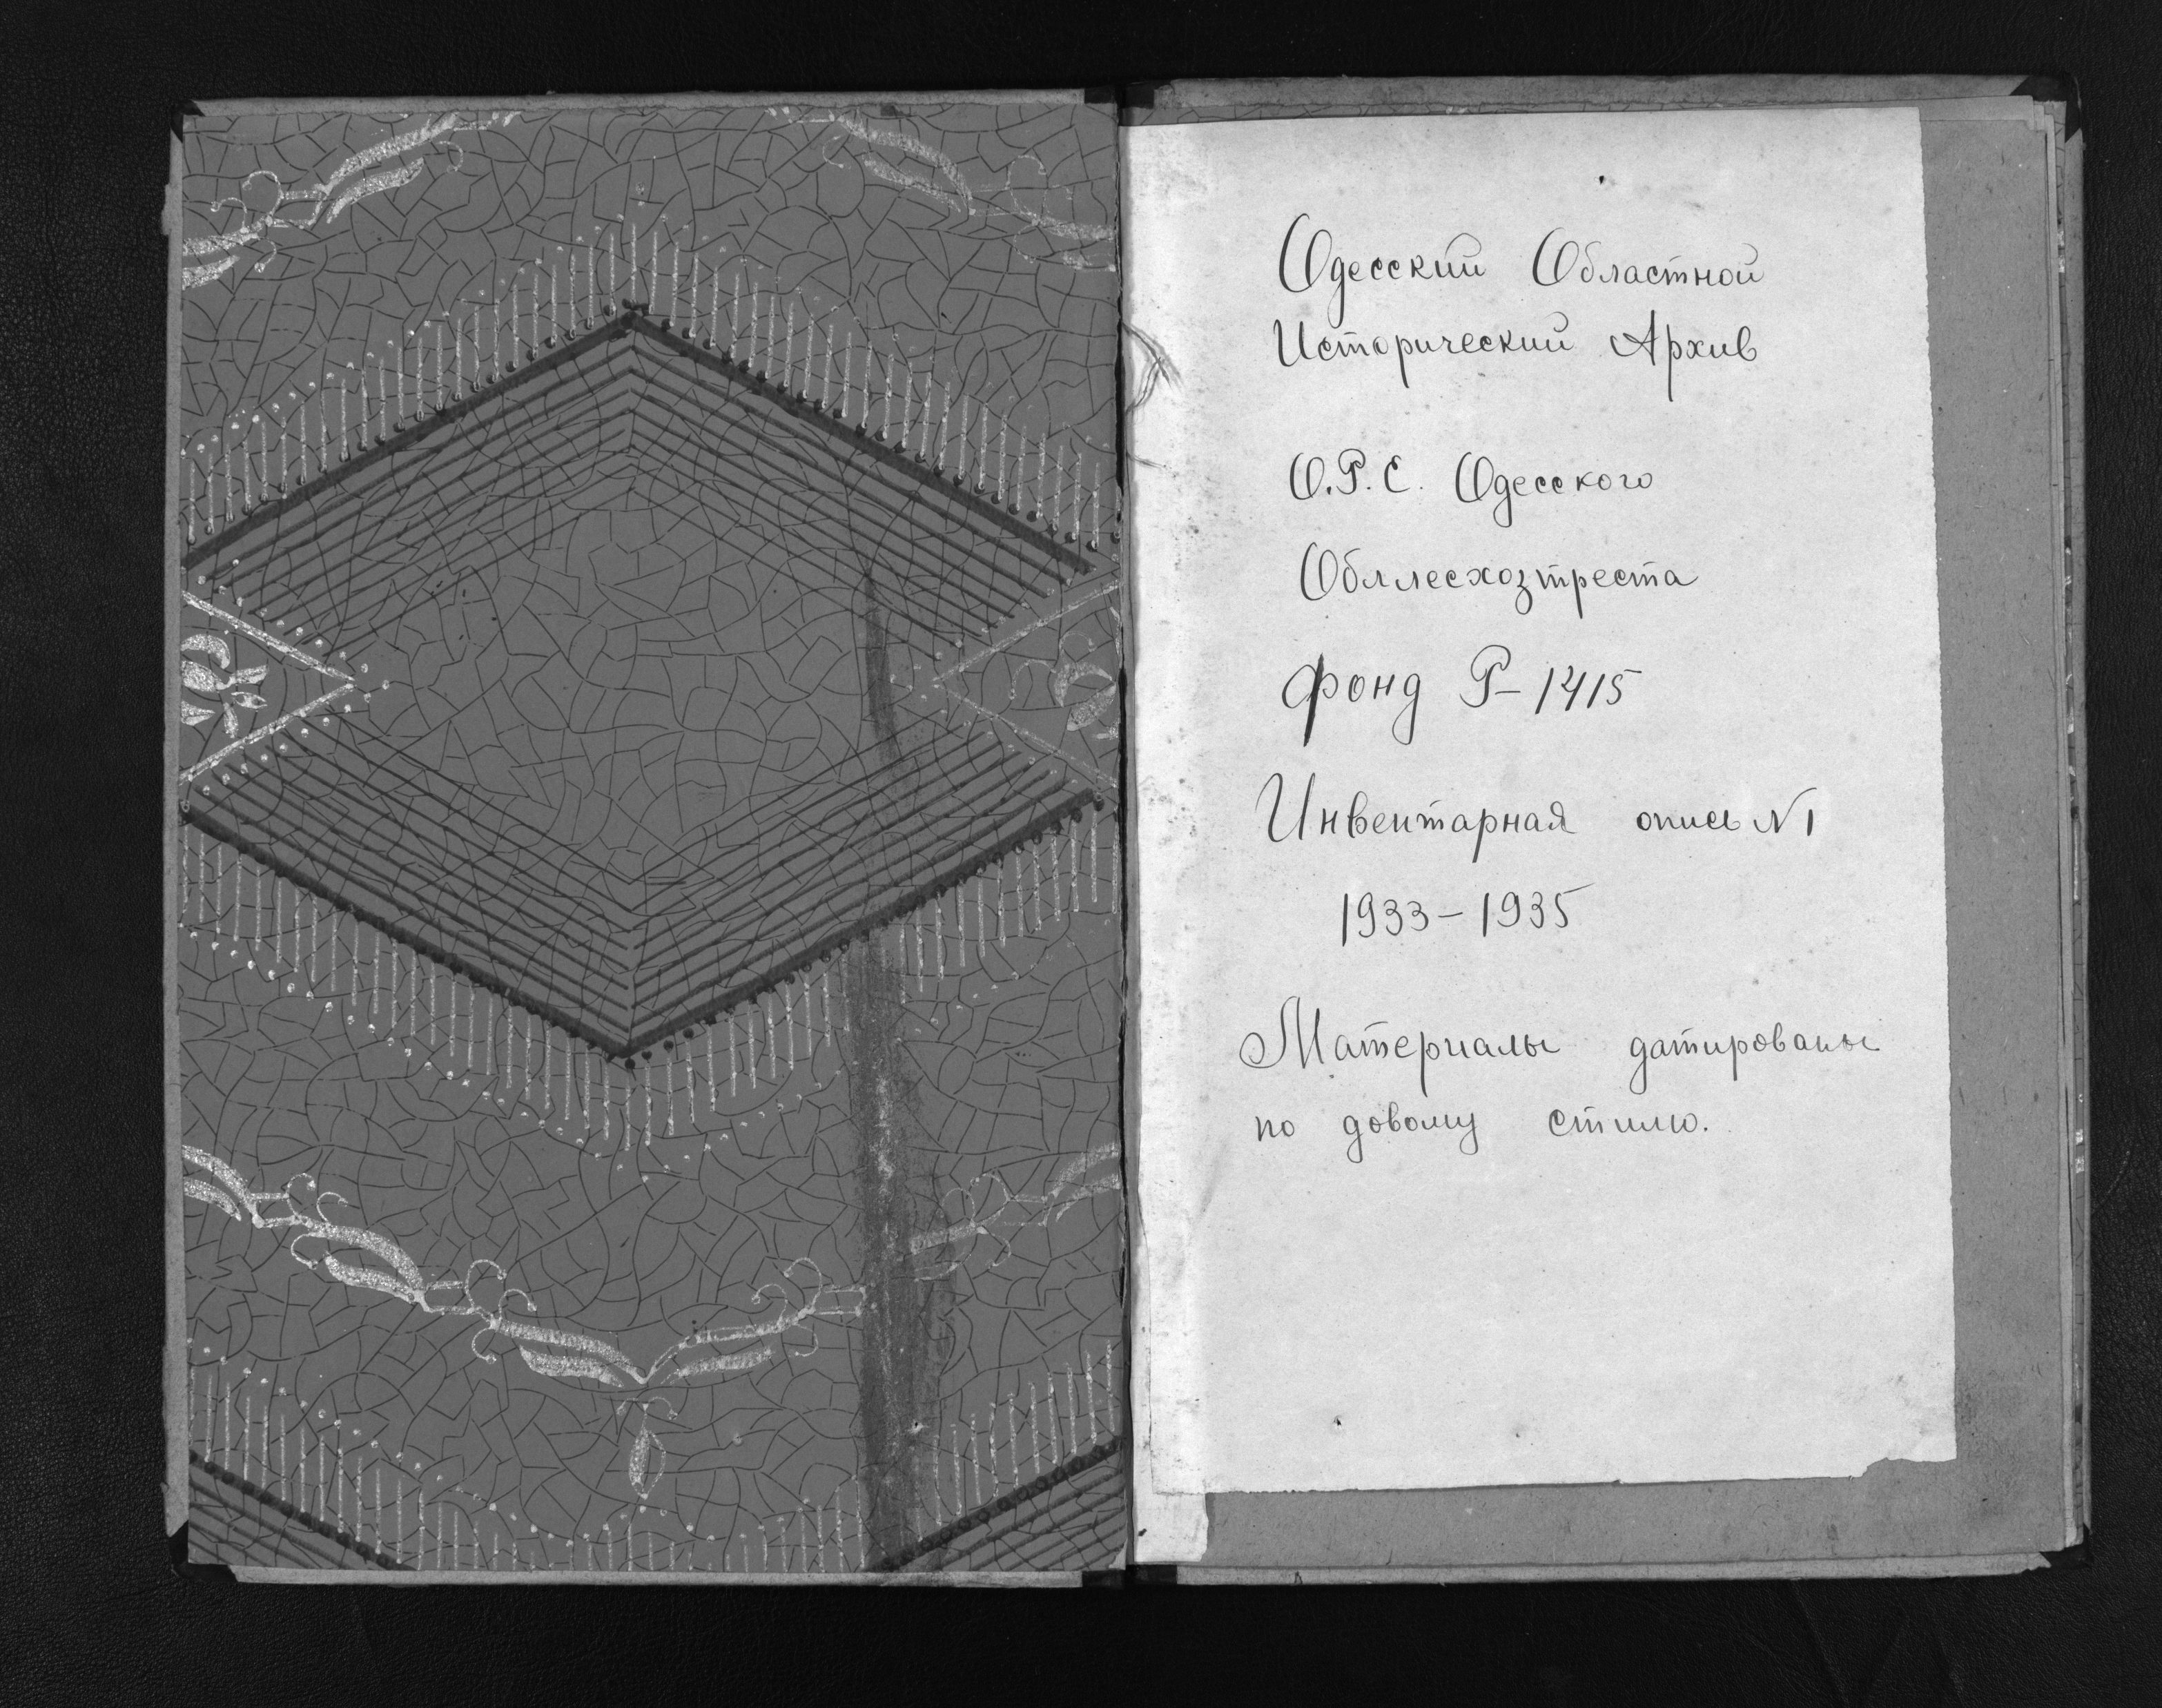 Одесский Областной
Исторический Архив
О.Р.С. Одесского
Обллесхозтреста
Фонд Р-1415
Инвентарная опись №1
1933-1935
Материалы датированы
по довому стилю.